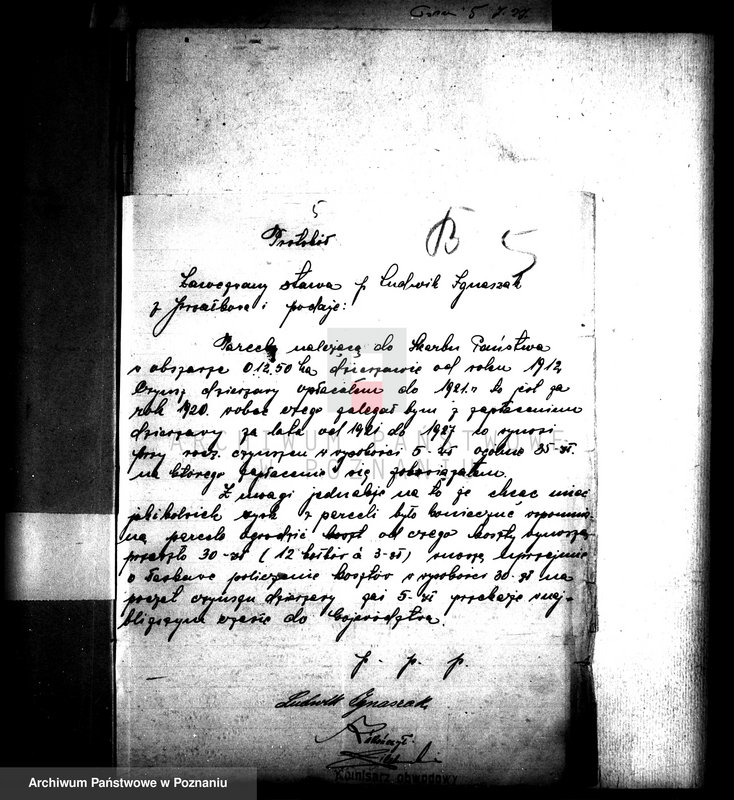 5
Protokół
B 5
Zawezwany stawa p Ludwik Ignaszak
z i podaje:
Parcelę należącą do Skarbu Państwa
o obszarze 0.12.50 ha dzierżawię od roku 1912
Czynsz dzierżawy opłacałem do 1921 r to jest za
rok 1920. wobec czego zalegał bym z zapłaceniem
dzierżawy za lata od 1921 do 1927 to wynosi
przy rocz. czynszem w wysokości 5 - zł ogólnie 35 - zł.
na którego zapłacenie się zobowiązałem
Z uwagi jednakże na to że chcąc mieć
jakikolwiek zysk z parceli było konieczne
parcelę ogrodzić koszt od czego koszty wynoszą
przeszło 30 - zł ( 12 á 3 - zł ) uprzejmie
o łaskawe policzenie kosztów w wysokości 30 - zł na
poczet czynszu dzierżawy zaś 5 - zł przekażę w naj-
bliższym czasie do Województwa.
p. p. p.
Ludwik Ignaszak
Komisarz obwodowy
ARCHIWUM PAŃSTWOWE
W POZNANIU
Archiwum Państwowe w Poznaniu